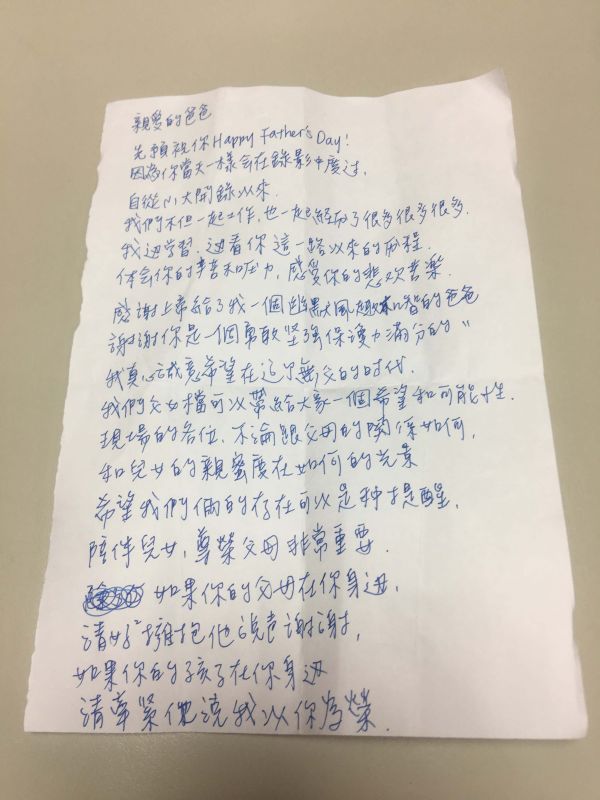 親愛的爸爸
先預祝你Happy Father's Day!
因為你當天一樣會在錄影中度过,
自從小大開錄以來.
我們不但一起工作,也一起經历了很多很多很多.
我边学習.边看你這一路以來的历程.
体会你的辛苦和压力,感受你的悲欢苦樂.
感謝上帝給了我一個幽默風趣機智的爸爸
謝謝你是一個勇敢坚強保護力滿分的"
我真心誠意希望在这个無父的时代.
我們父女檔可以帶給大家一個希望和可能性.
現場的各位,不論跟父母的関係如何,
和兒女的親蜜度在如何的光景
希望我們倆的存在可以是种提醒,
陪伴兒女,尊榮父母非常重要.
如果你的父母在你身边,
請好²擁抱他说声謝謝,
如果你的孩子在你身边
請牽緊他说我以你為榮.